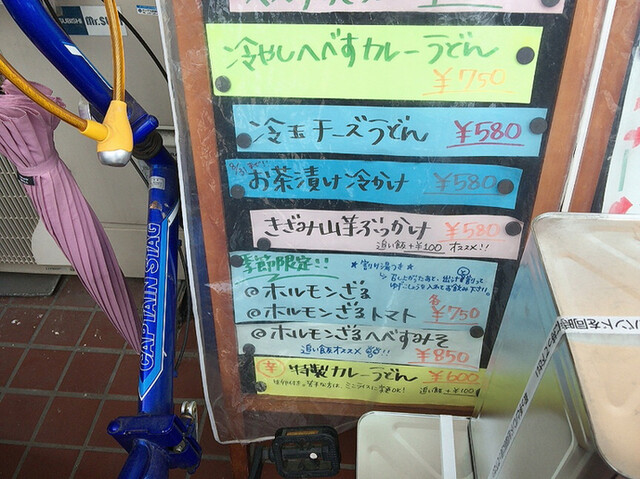 MITSUBISHI Mr.SL
冷やしへべすカレーうどん
¥750
冷玉チーズうどん ¥580
お茶漬け冷かけ ¥580
きざみ山芋ぶっかけ ¥580
追い飯+¥100 オススメ!!
季節限定!!
★割り湯つき★
@ホルモンざる
@ホルモンざるトマト 各¥750
@ホルモンざるへべすみそ
追い飯オススメ ¥850
特製カレーうどん ¥600
追い飯+¥100
CAPTAIN STAG
バンドを同時